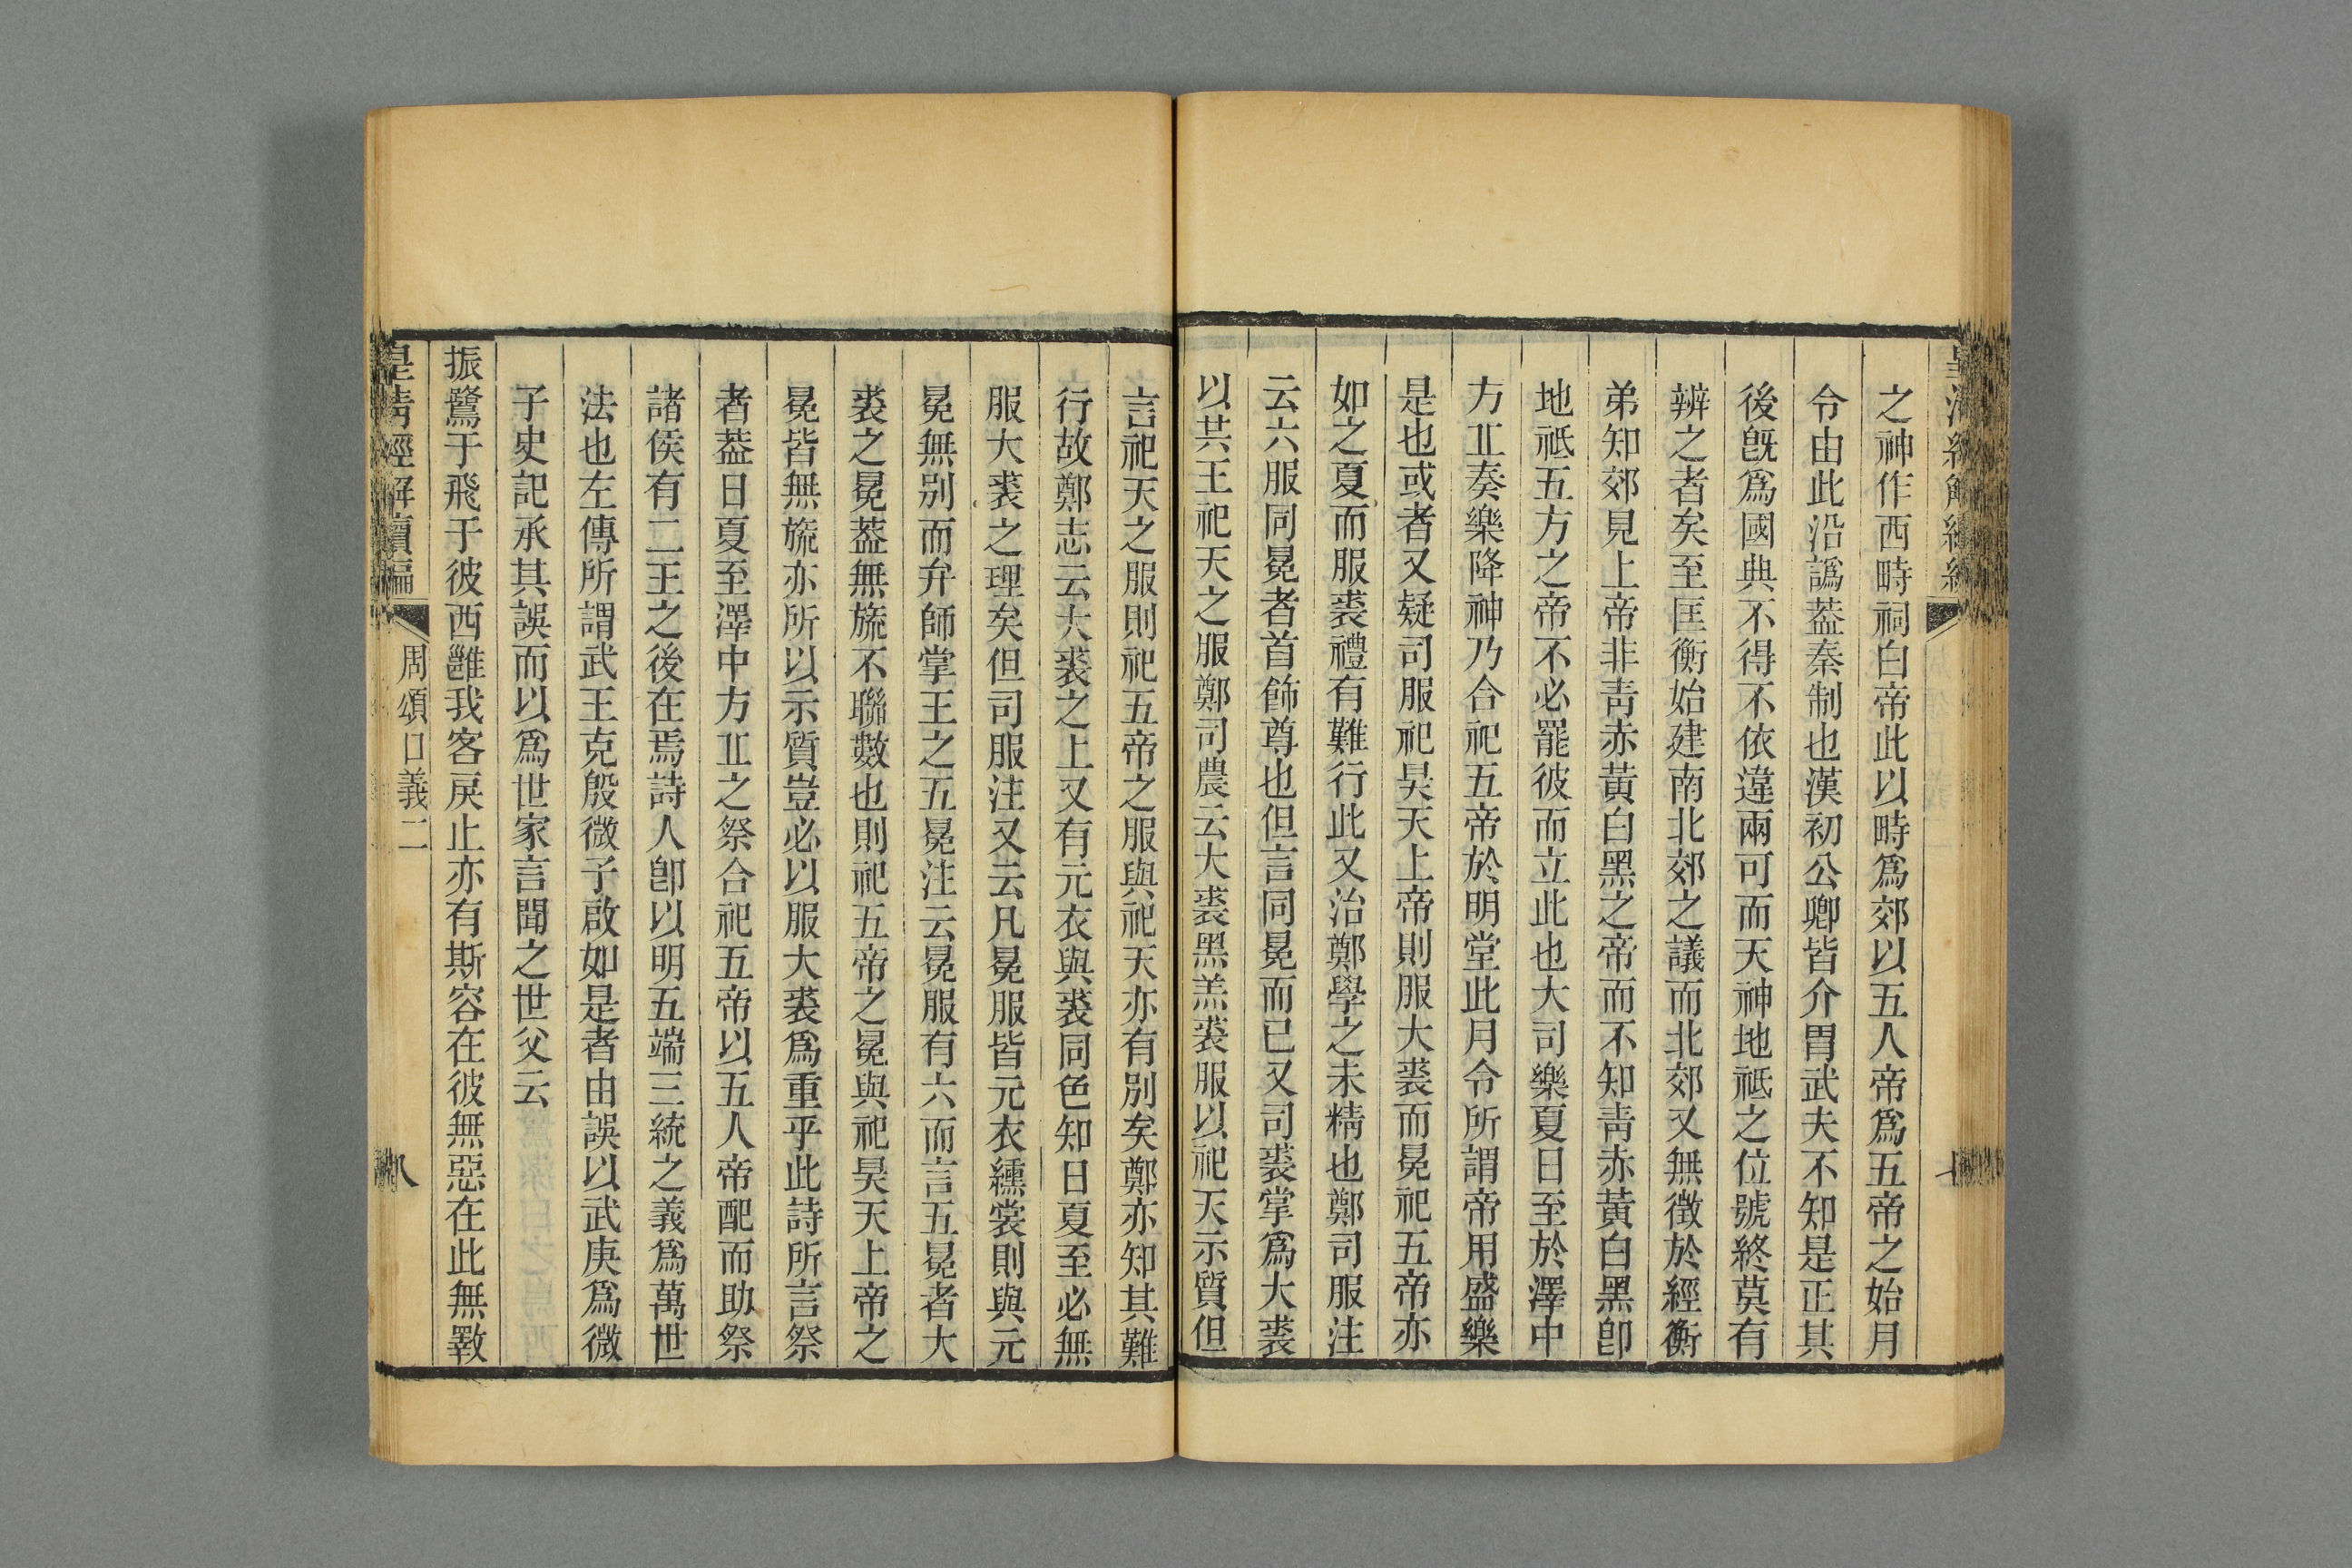 之神作西畤祠白帝此以畤爲郊以五人帝爲五帝之始月
令由此沿譌葢秦制也漢初公卿皆介冑武夫不知是正其
後旣爲國典不得不依違兩可而天神地祗之位號終莫有
辨之者矣至匡衡始建南北郊之議而北郊又無徵於經衡
弟知郊見上帝非靑赤黃白黑之帝而不知靑赤黃白黑卽
地祗五方之帝不必罷彼而立此也大司樂夏日至於澤中
方丠奏樂降神乃合祀五帝於明堂此月令所謂帝用盛樂
是也或者又疑司服祀昊天上帝則服大裘而冕祀五帝亦
如之夏而服裘禮有難行此又治鄭學之未精也鄭司服注
云六服同冕者首飾尊也但言同冕而已又司裘掌爲大裘
以共王祀天之服鄭司農云大裘黑羔裘服以祀天示質但
言祀天之服則祀五帝之服與祀天亦有別矣鄭亦知其難
行故鄭志云大裘之上又有元衣與裘同色知日夏至必無
服大裘之理矣但司服注又云凡冕服皆元衣纁裳則與元
冕無別而弁師掌王之五冕注云冕服有六而言五冕者大
裘之冕葢無旒不聯數也則祀五帝之冕與祀昊天上帝之
冕皆無旒亦所以示質豈必以服大裘爲重乎此詩所言祭
者葢日夏至澤中方丠之祭合祀五帝以五人帝配而助祭
諸侯有二王之後在焉詩人卽以明五端三統之義爲萬世
法也左傳所謂武王克殷微子啟如是者由誤以武庚爲微
子史記承其誤而以爲世家言聞之世父云
振鷺于飛于彼西雝我客戾止亦有斯容在彼無惡在此無斁
皇淸經解續編 周頌口義二 八